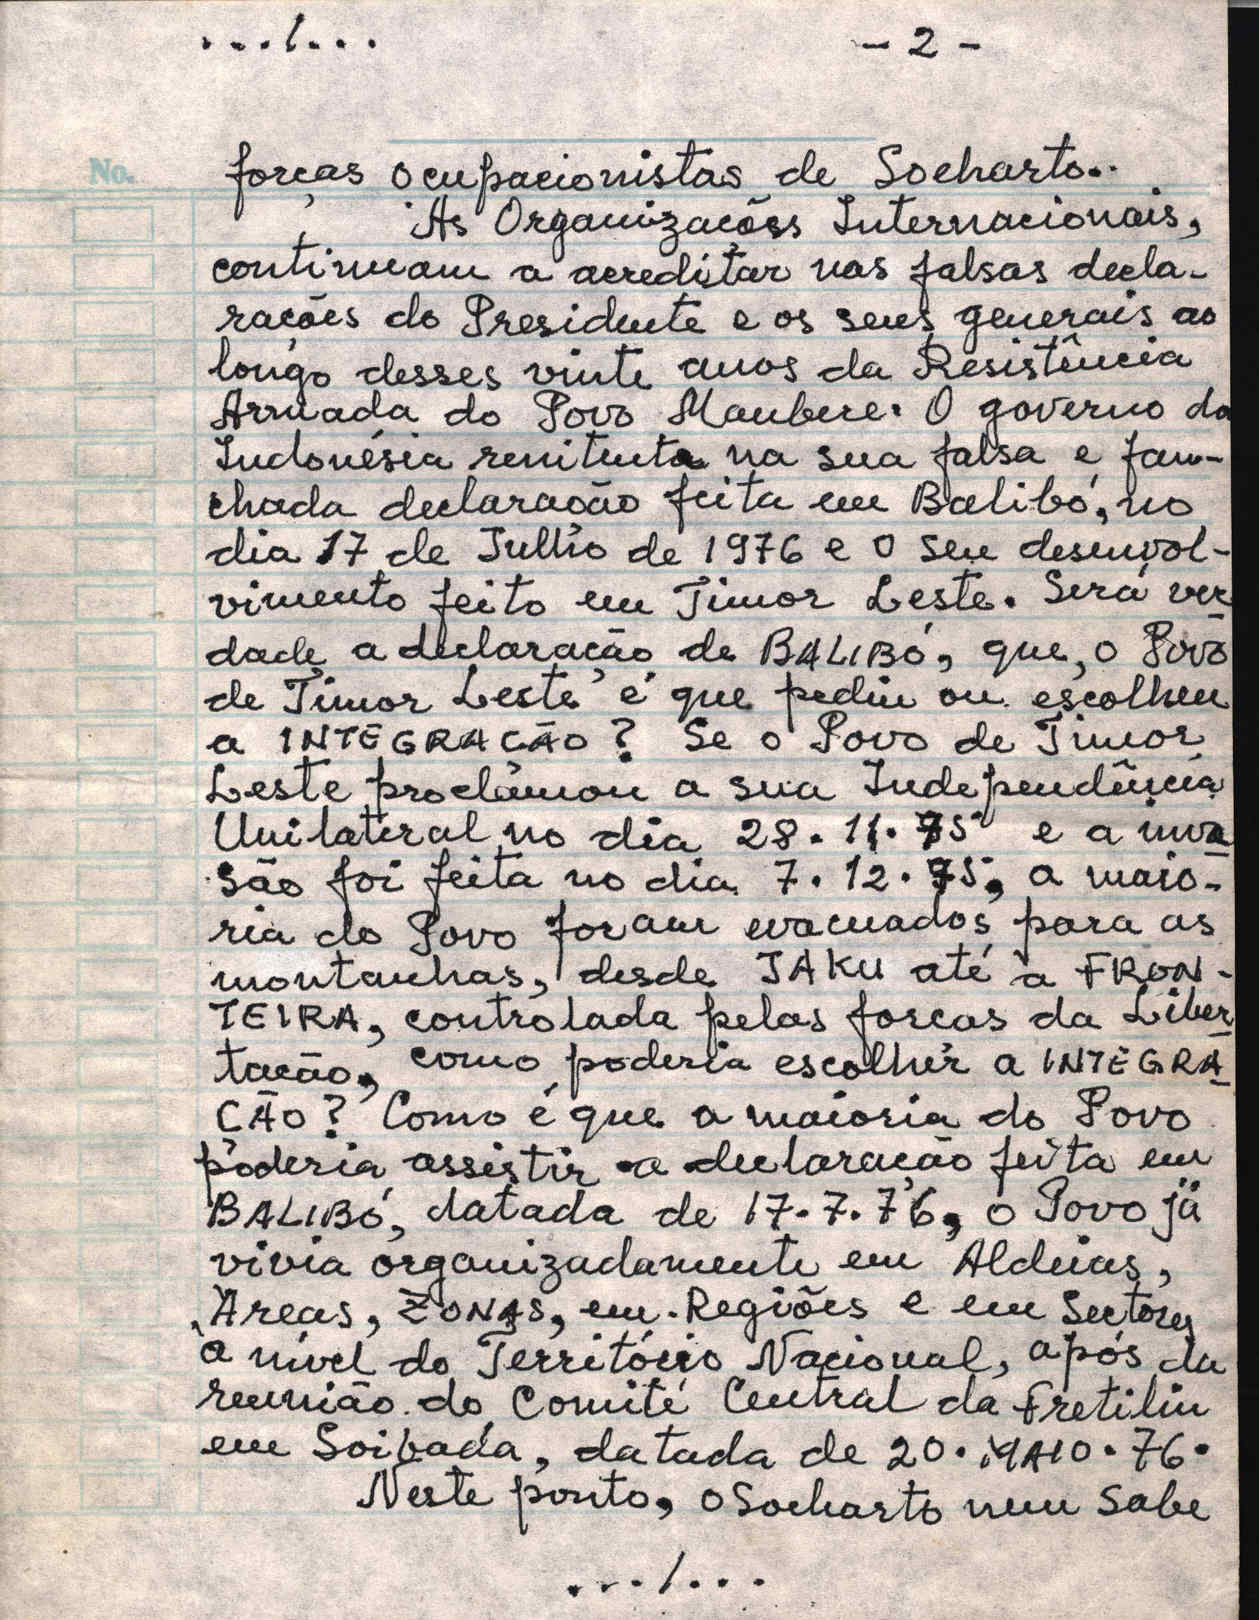 .../... - 2 -
No. forças ocupacionistas de Soeharto..
As Organizações Internacionais,
continuam a acreditar nas falsas decla-
rações do Presidente e os seus generais ao
longo desses vinte anos da Resistência
Armada do Povo Maubere. O governo da
Indonésia renitenta na sua falsa e fan-
chada declaração feita em Balibó, no
dia 17 de Julho de 1976 e o seu desenvol-
vimento feito em Timor Leste. Será ver
dade a declaração de BALIBÓ, que, o Povo
de Timor Leste é que pediu ou escolheu
a INTEGRAÇÃO? Se o Povo de Timor
Leste proclamou a sua Independência
Unilateral no dia 28.11.75 e a inva
são foi feita no dia 7.12.75, a maio-
ria do Povo foram evacuados para as
montanhas, desde JAKU até à FRON-
TEIRA, controlada pelas forças da Liber
tação, como poderia escolher a INTEGRA
ÇÃO? Como é que a maioria do Povo
poderia assistir a declaração feita em
BALIBÓ, datada de 17.7.76, o Povo já
vivia organizadamente em Aldeias,
Áreas, ZONAS, em Regiões e em Sectores
a nível do Território Nacional, após da
reunião do Comité Central da Fretilin
em Soibada, datada de 20.MAIO.76.
Neste ponto, o Soeharto nem sabe
.../...